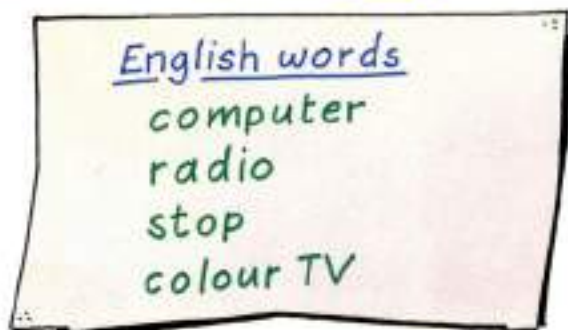 English words
computer
radio
stop
colour TV